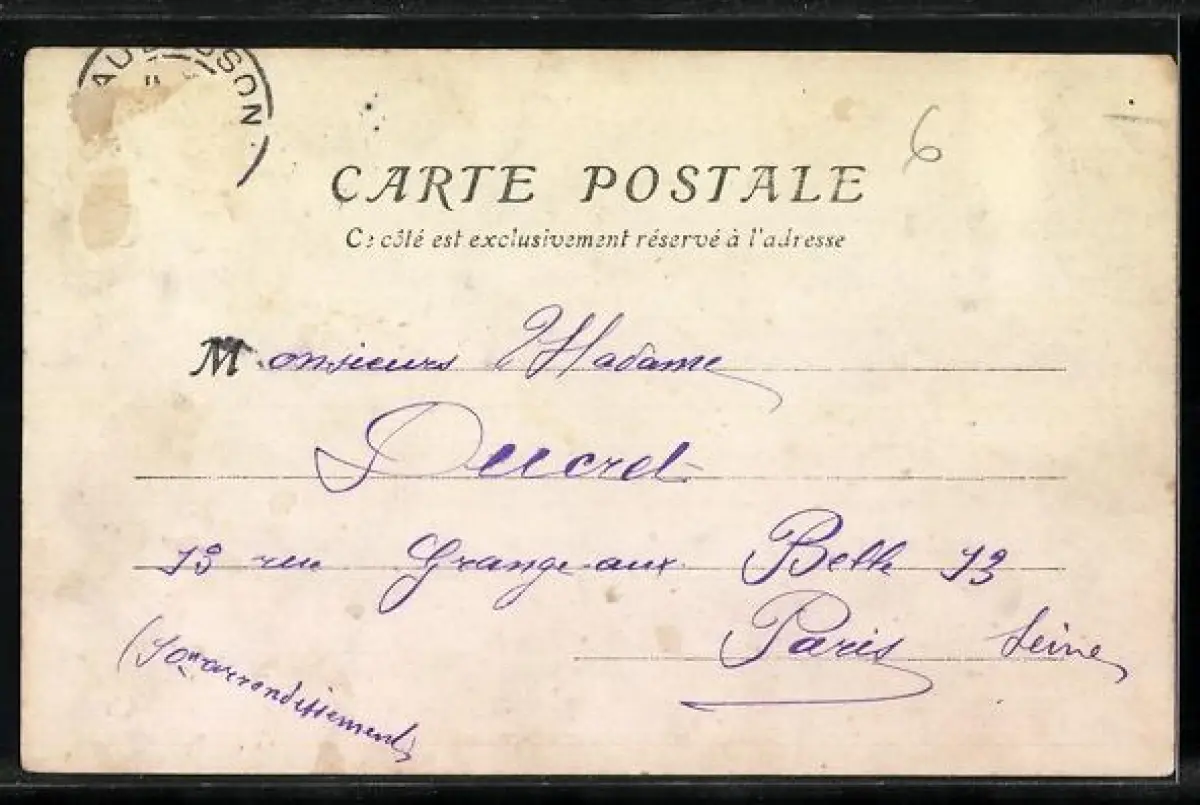 AUBUSSON
6
CARTE POSTALE
Ce côté est exclusivement réservé à l'adresse
Monsieurs Madame
Ducret
13 rue Grange-aux Belle 13
Paris Seine
(10me arrondissement)